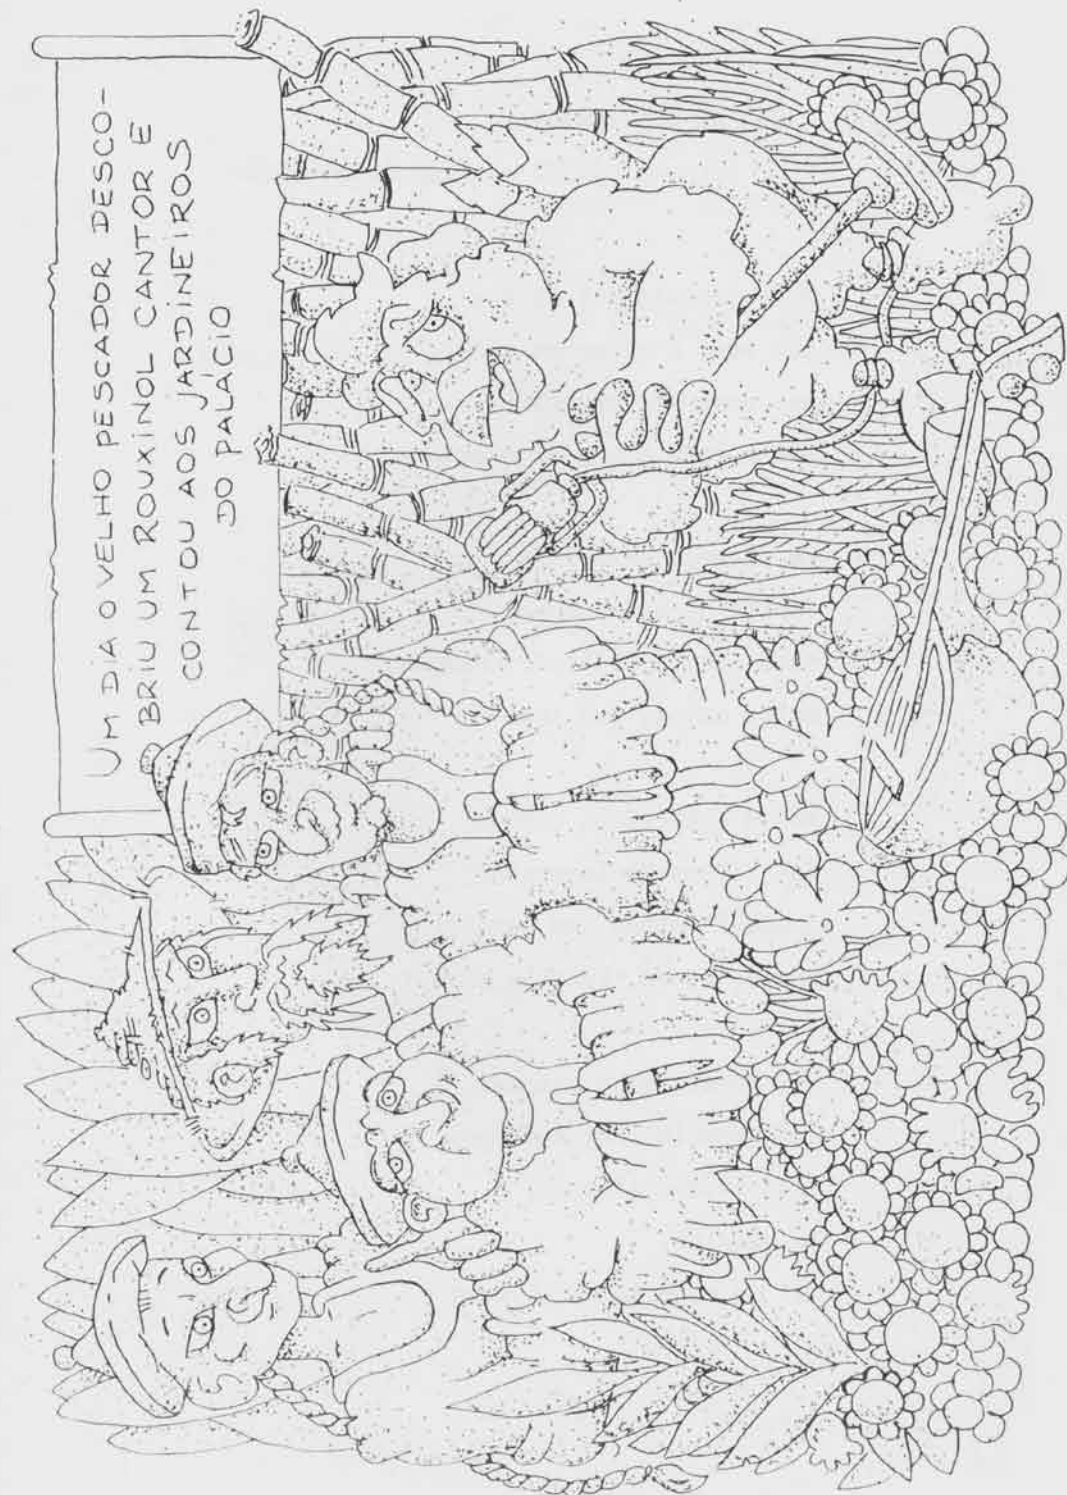 UM DIA O VELHO PESCADOR DESCO-
BRIU UM ROUXINOL CANTOR E
CONTOU AOS JARDINEIROS
DO PALÁCIO